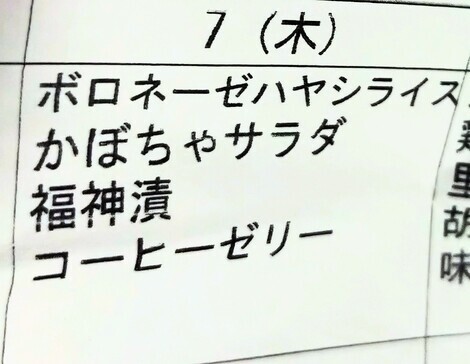 7 (木)
ボロネーゼハヤシライス
かぼちゃサラダ
福神漬
コーヒーゼリー
里
胡
味